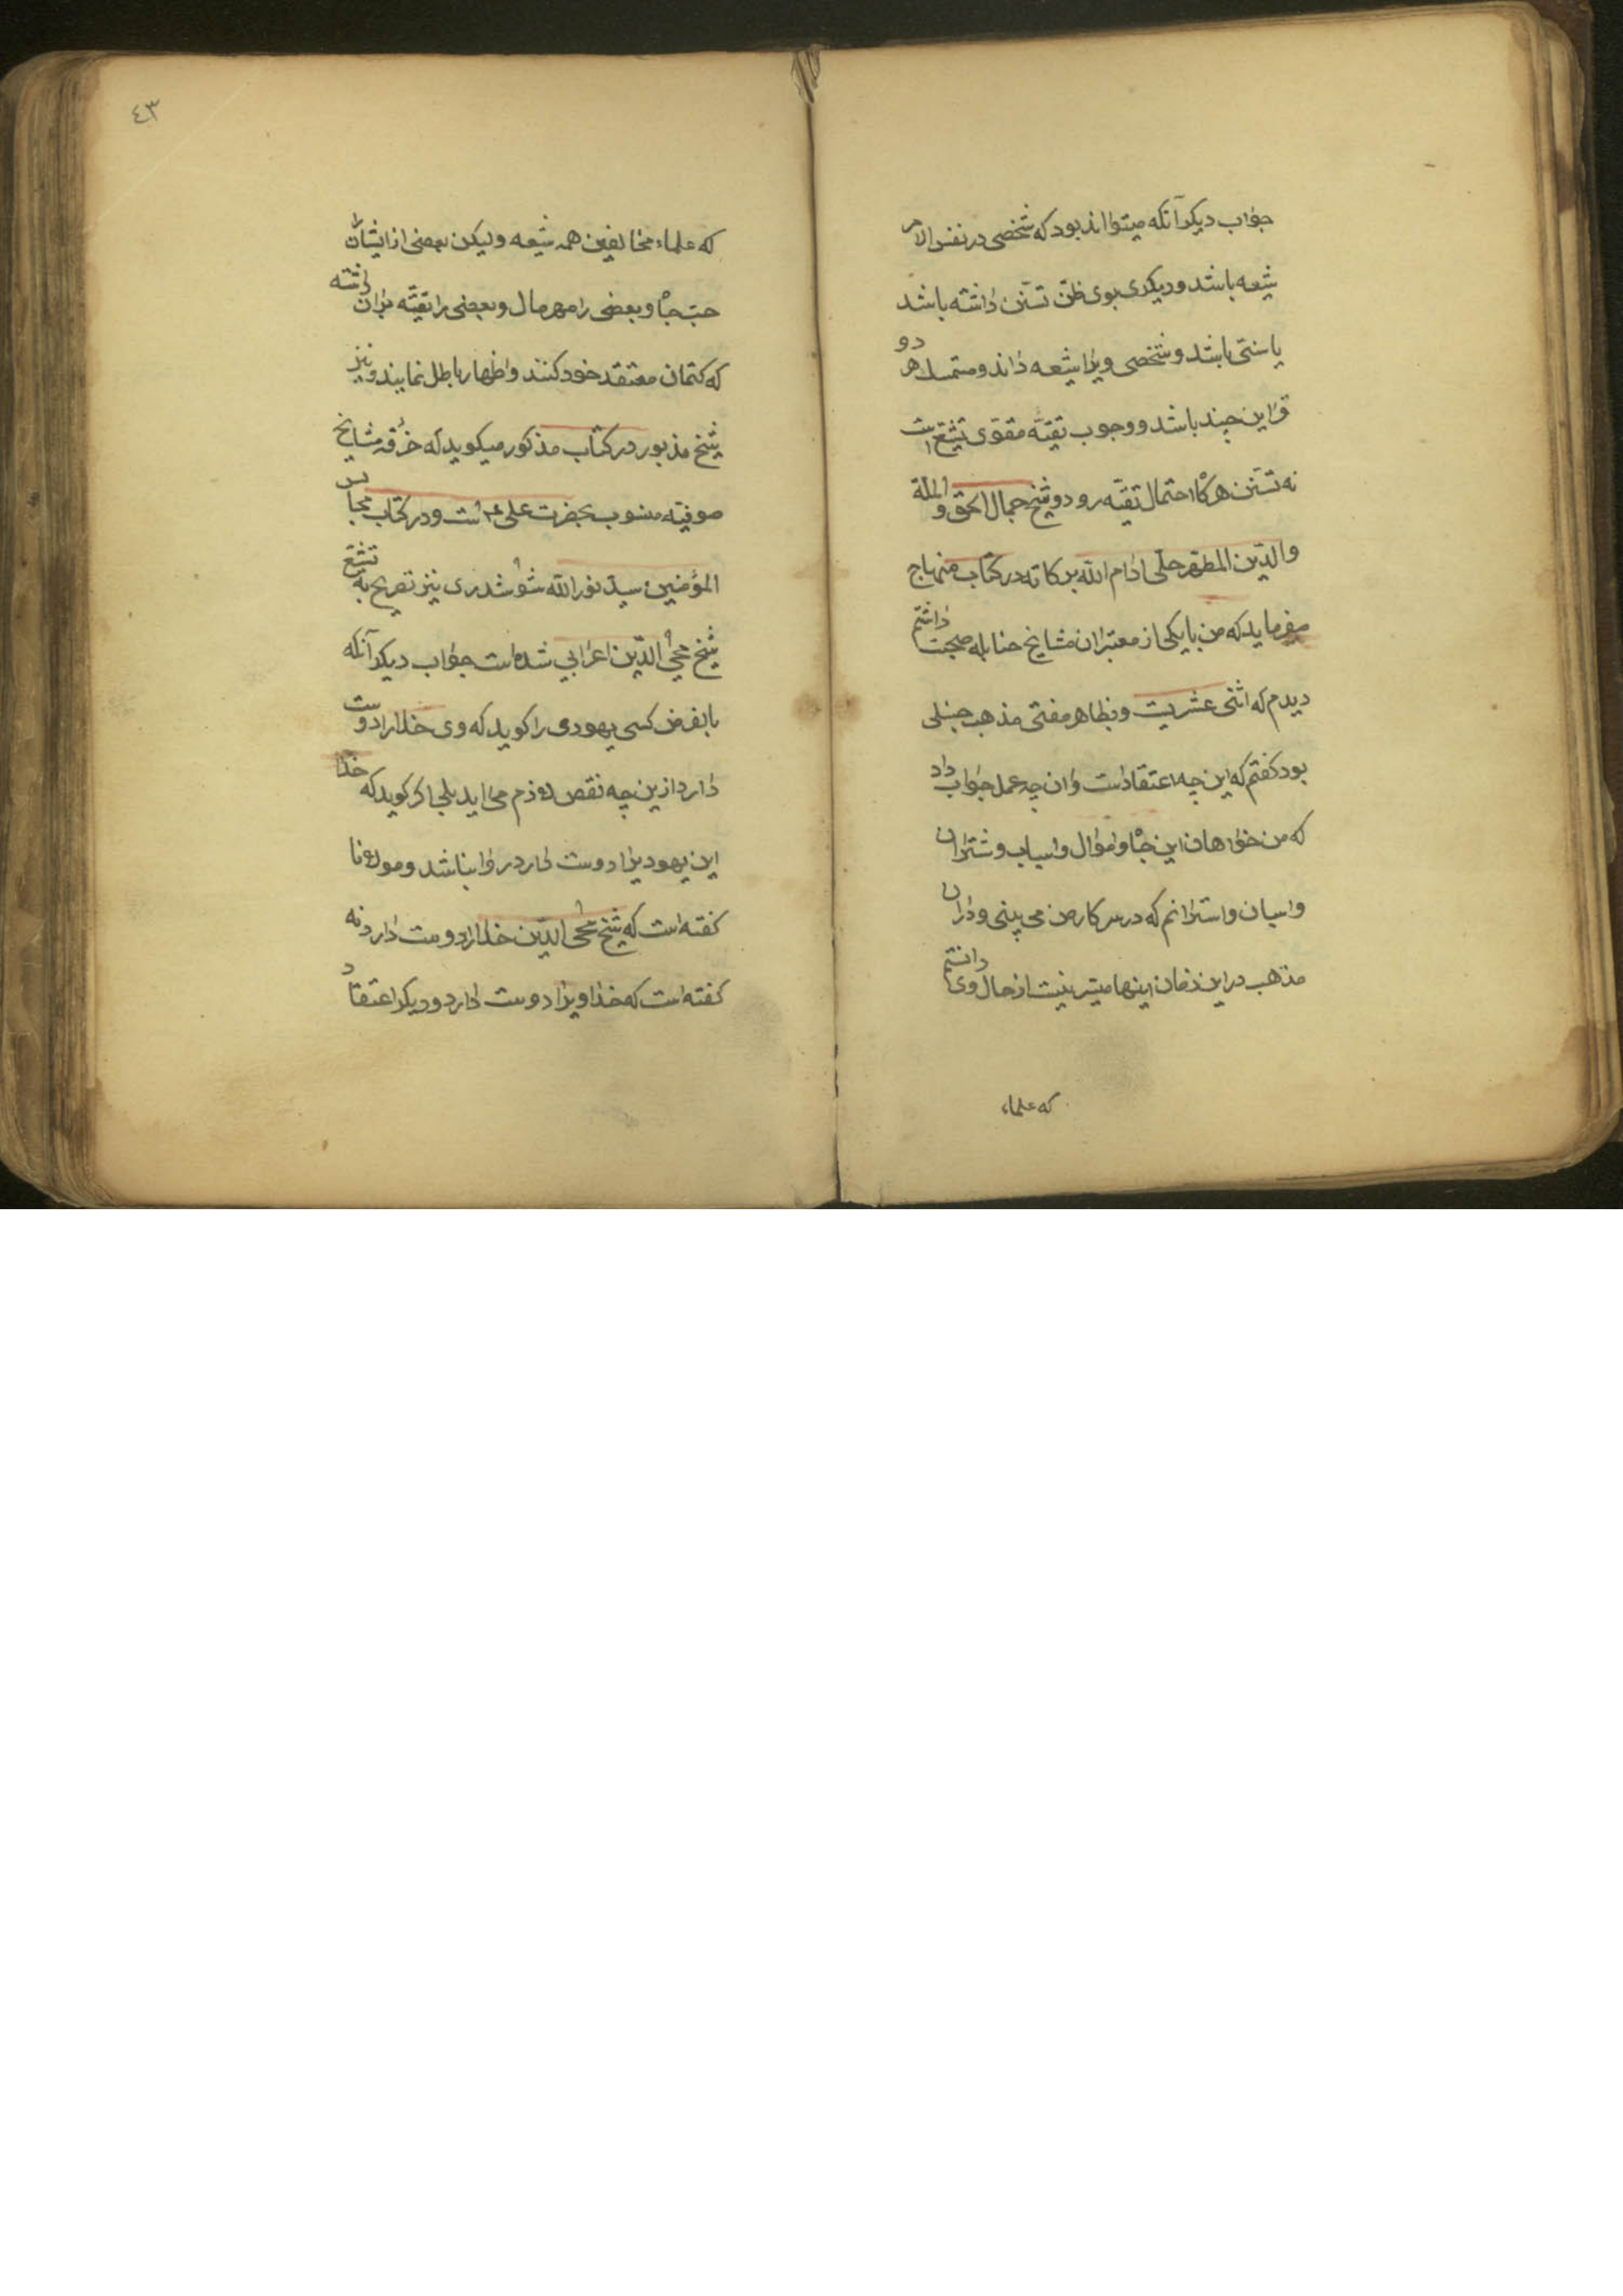 جواب دیکر آنکه میتواند بود که شخصی در نفس الامر
شیعه باشد و دیکری بوی ظن تسنن داشته باشد
یا سنی باشد و شخصی ویرا شیعه داند و متمسک هر دو
قراین چند باشد و وجوب تقیه مقوی تشیع است
نه تسنن هرکاه احتمال تقیه رود و شیخ جمال الحق و الملة
والدین المطهر حلی ادام الله برکاته در کتاب منهاج
میفرماید که من با یکی از معتبران مشایخ حنابله صحبت داشتم
دیدم که اثنی عشریت و بظاهر مفتی مذهب حنبلی
بود کفتم که این چه اعتقاداست وان چه عمل جواب داد
که من خواهان این جاه و اموال و اسباب و شتران
و اسبان و استرانم که در سرکار من می بینی و در ان
مذهب در این زمان اینها میسر نیست از حال وی دانستم
که علماء
٤٣
که علماء مخالفین همه شیعه و لیکن بعضی از ایشان را
حب جاه و بعضی را مهر مال و بعضی را تقیه بران داشته
که کتمان معتقد خود کنند و اظهار باطل نمایند و نیز
شیخ مذبور در کتاب مذکور میکوید که خرقه مشایخ
صوفیه منسوب بحضرت علی ع است و در کتاب مجالس
المؤمنین سید نورالله شوشدری نیز تصریح به تشیع
شیخ محی الدین اعرابی شده است جواب دیکر آنکه
بالفرض کسی یهودی را کوید که وی خدا را دوست
دارد ازین چه نقص و ذم می اید بلی اکر کوید که خدا
این یهودیرا دوست دارد روا نباشد و مولانا
کفته است که شیخ محی الدین خدا را دوست دارد نه
کفته است که خدا ویرا دوست دارد و دیکر اعتقاد